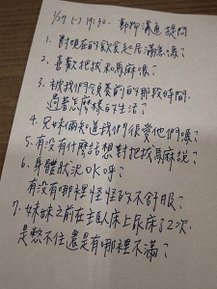 1/27 (一) 19:30. 動物溝通提問
1. 對現在的飲食起居滿意嗎?
2. 喜歡把拔和馬麻嗎?
3. 被我們領養前的那段時間,
過著怎麼樣的生活?
4. 兄妹倆知道我們很愛他們嗎?
5. 有沒有什麼話想對把拔馬麻說?
6. 身體狀況OK呼?
有沒有哪裡怪怪的不舒服?
7. 妹妹之前在主臥床上尿床了2次,
是憋不住還是有哪裡不滿?